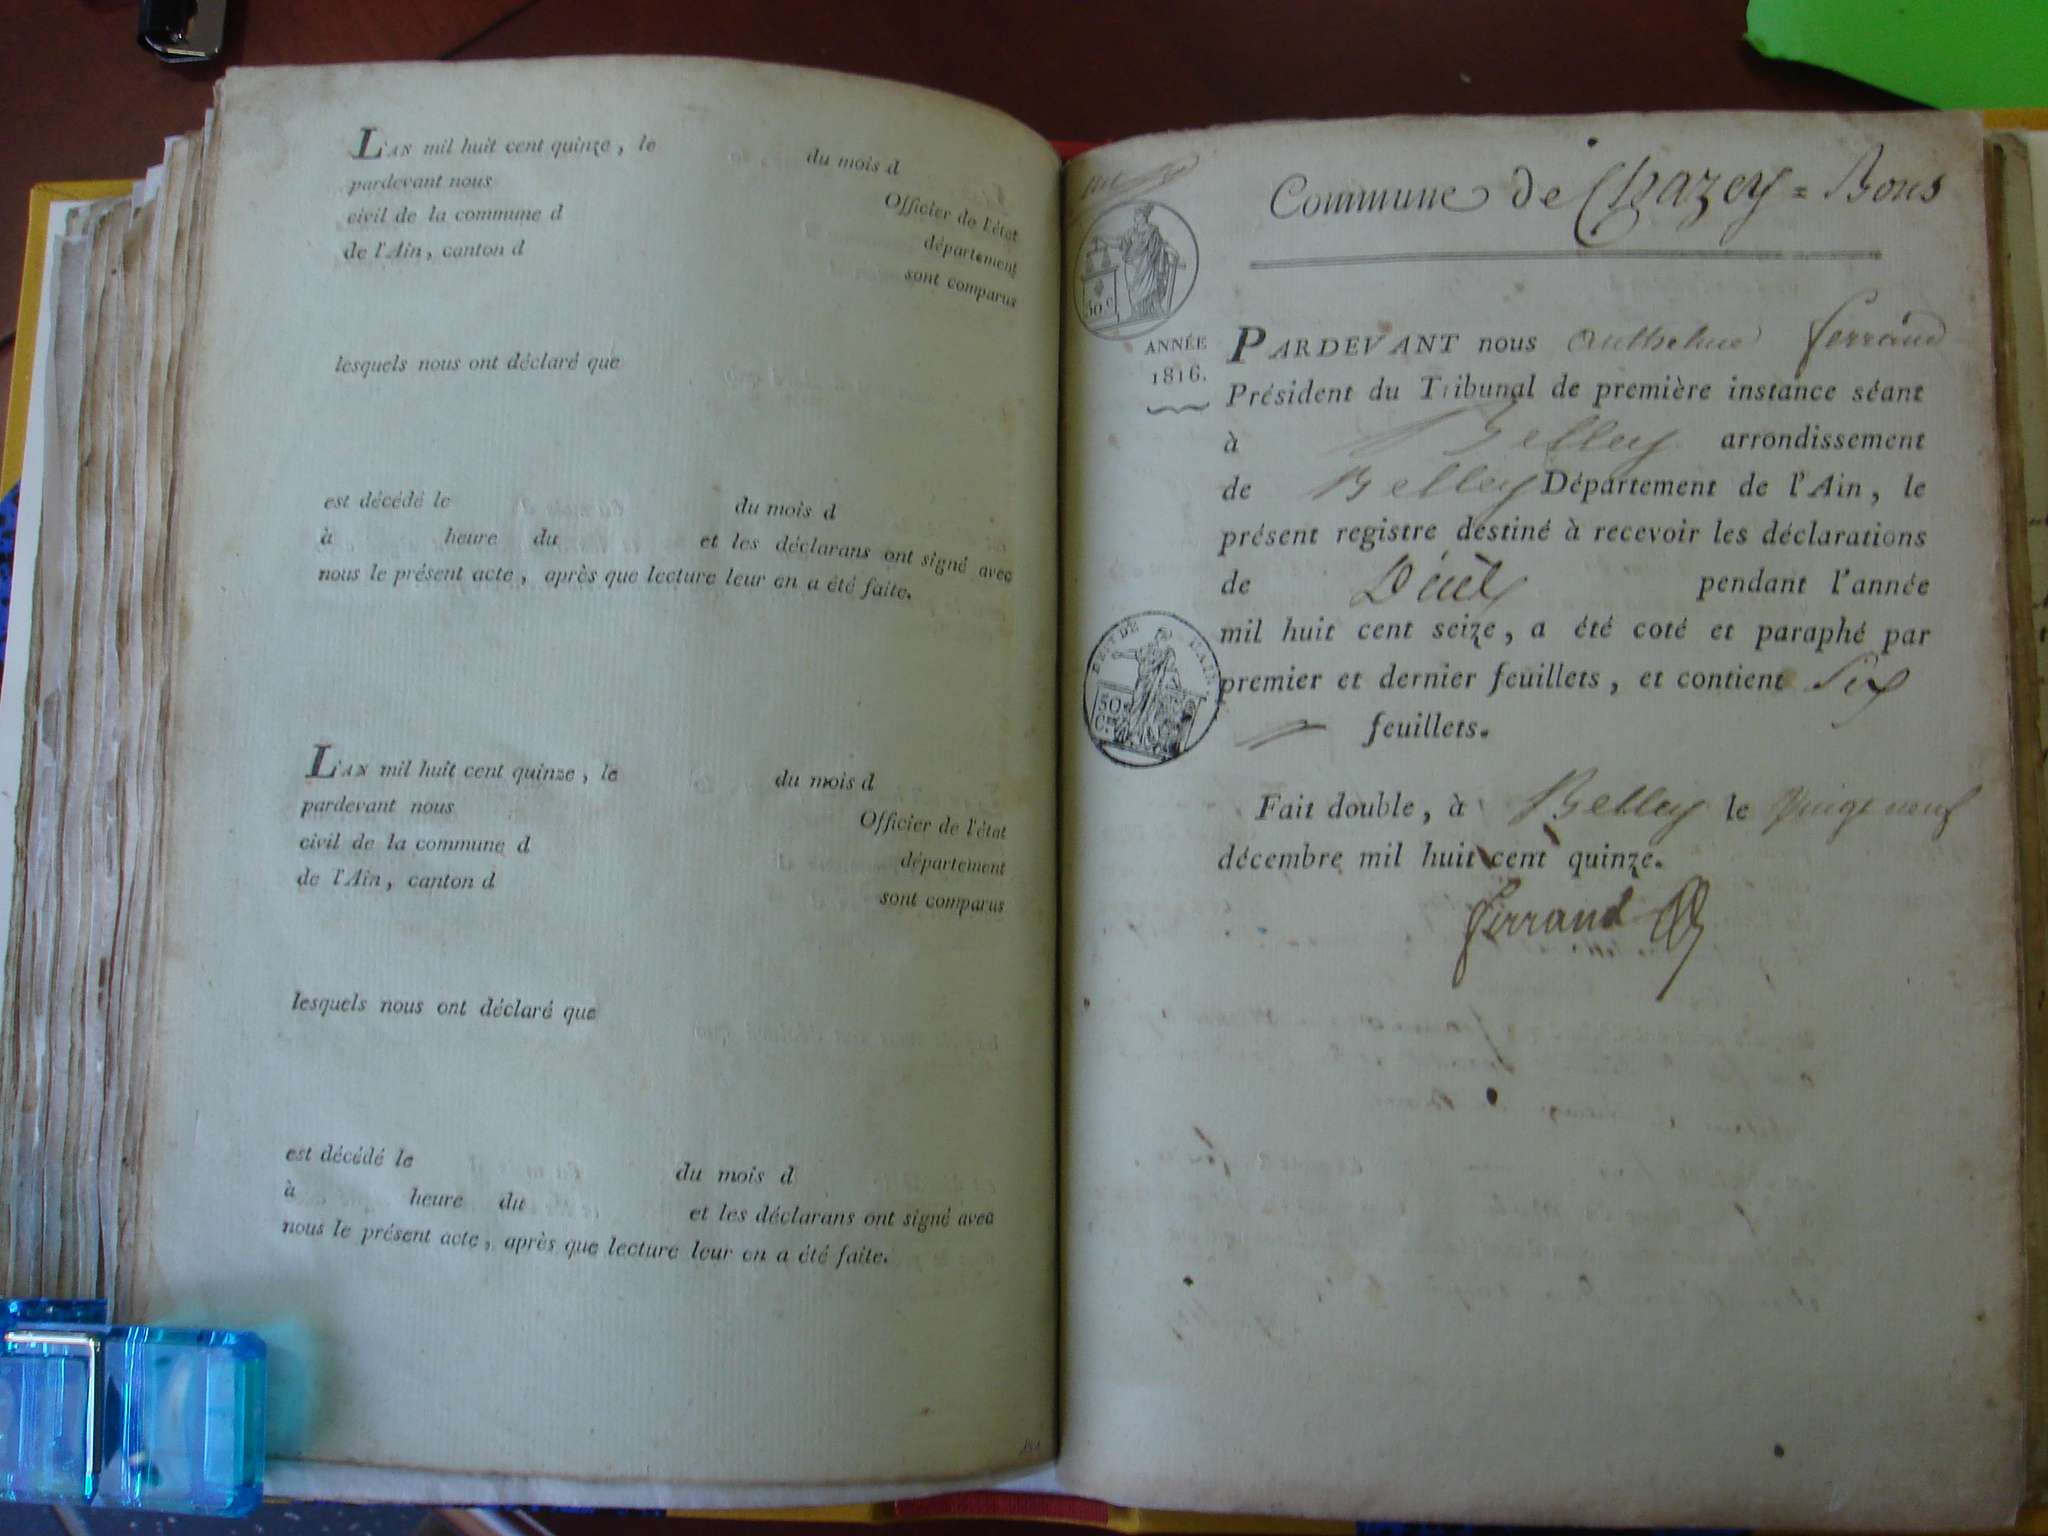 L'AN mil huit cent quinze, le du mois d
pardevant nous Officier de l'état
civil de la commune d département
de l'Ain, canton d sont comparus
lesquels nous ont déclaré que
est décédé le du mois d
à heure du et les déclarans ont signé avec
nous le présent acte, après que lecture leur en a été faite.
L'AN mil huit cent quinze, le du mois d
pardevant nous Officier de l'état
civil de la commune d département
de l'Ain, canton d sont comparus
lesquels nous ont déclaré que
est décédé le du mois d
à heure du et les déclarans ont signé avec
nous le présent acte, après que lecture leur en a été faite.
Commune de Chazey = Bons
50 c
ANNÉE
1816.
PARDEVANT nous Anthelme ferrand
Président du Tribunal de première instance séant
à Belley arrondissement
de Belley Département de l'Ain, le
présent registre destiné à recevoir les déclarations
de Décès pendant l'année
mil huit cent seize, a été coté et paraphé par
premier et dernier feuillets, et contient Six
feuillets.
DEPT DE L'AIN
50
C.
Fait double, à Belley le Vingt neuf
décembre mil huit cent quinze.
ferrand